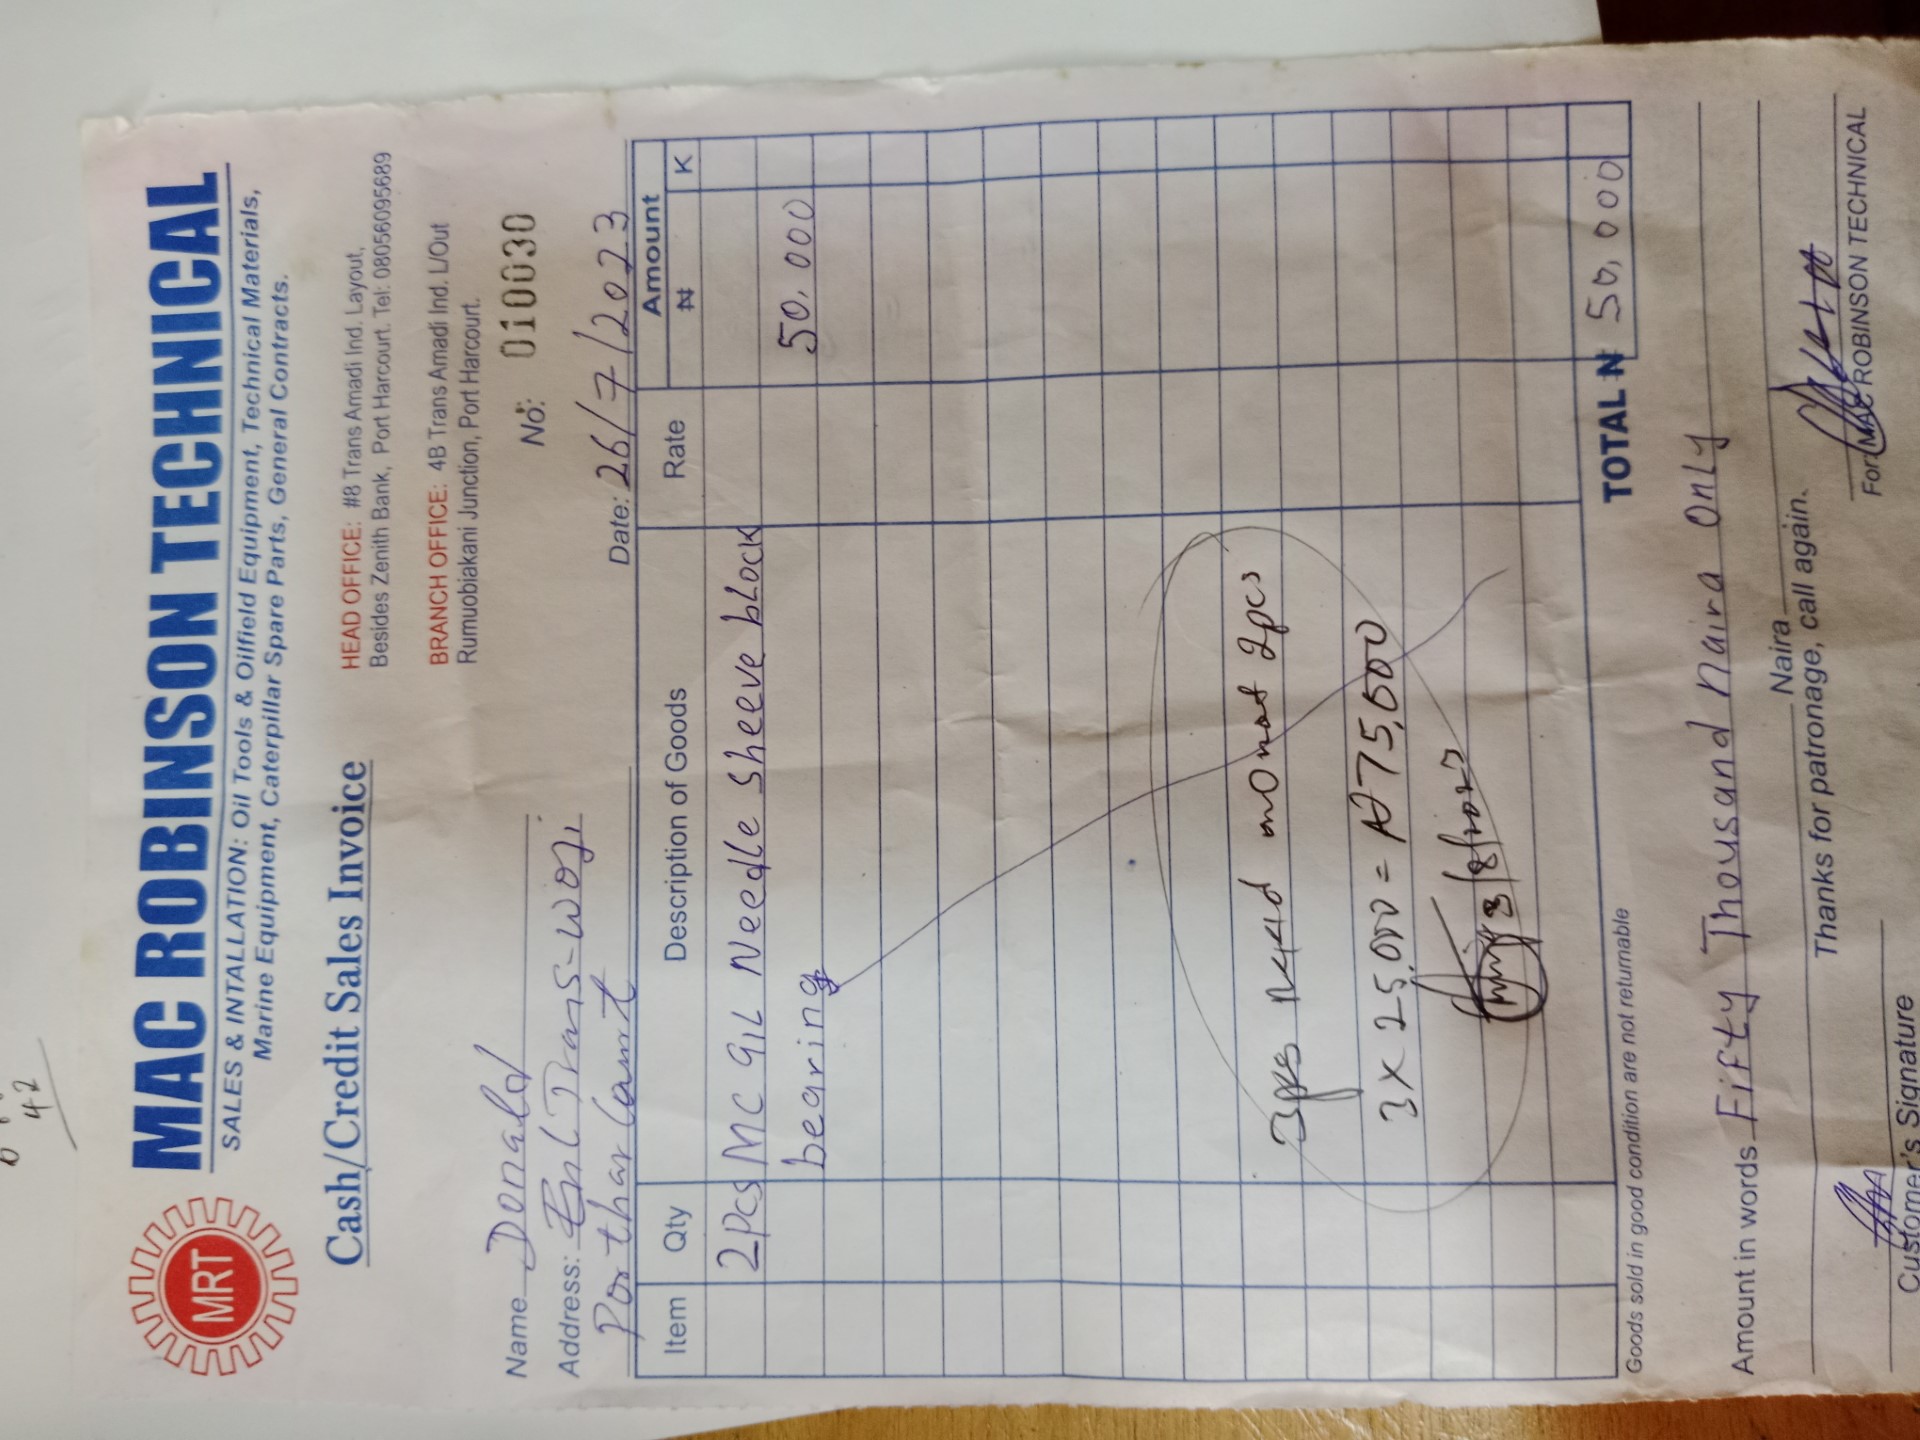 42
MRT
MAC ROBINSON TECHNICAL
SALES & INTALLATION: Oil Tools & Oilfield Equipment, Technical Materials,
Marine Equipment, Caterpillar Spare Parts, General Contracts.
Cash/Credit Sales Invoice
HEAD OFFICE: #8 Trans Amadi Ind. Layout,
Besides Zenith Bank, Port Harcourt. Tel: 08056095689
BRANCH OFFICE: 4B Trans Amadi Ind. L/Out
Rumuobiakani Junction, Port Harcourt.
No: 010030
Name Donald
Address: Trans-Woji
Date: 26/7/2023
Item Qty Description of Goods Rate Amount
₦ K
2Pcs Mc gil Needle sheeve block
bearing 50,000
3pcs not 2pcs
3 X 25,000 = ₦75,000
3/8/2023
TOTAL ₦ 50,000
Goods sold in good condition are not returnable
Amount in words Fifty Thousand Naira Only
Naira
Thanks for patronage, call again.
Customer's Signature
For: MAC ROBINSON TECHNICAL